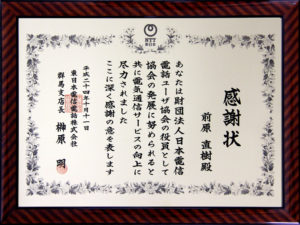 NTT
東日本
感謝状
前原 直樹殿
あなたは財団法人日本電信
電話ユーザ協会の役員として
協会の発展に努められると
共に電気通信サービスの向上に
尽力されました
ここに深く感謝の意を表します
平成二十四年十月十一日
東日本電信電話株式会社
群馬支店長 榊原 明